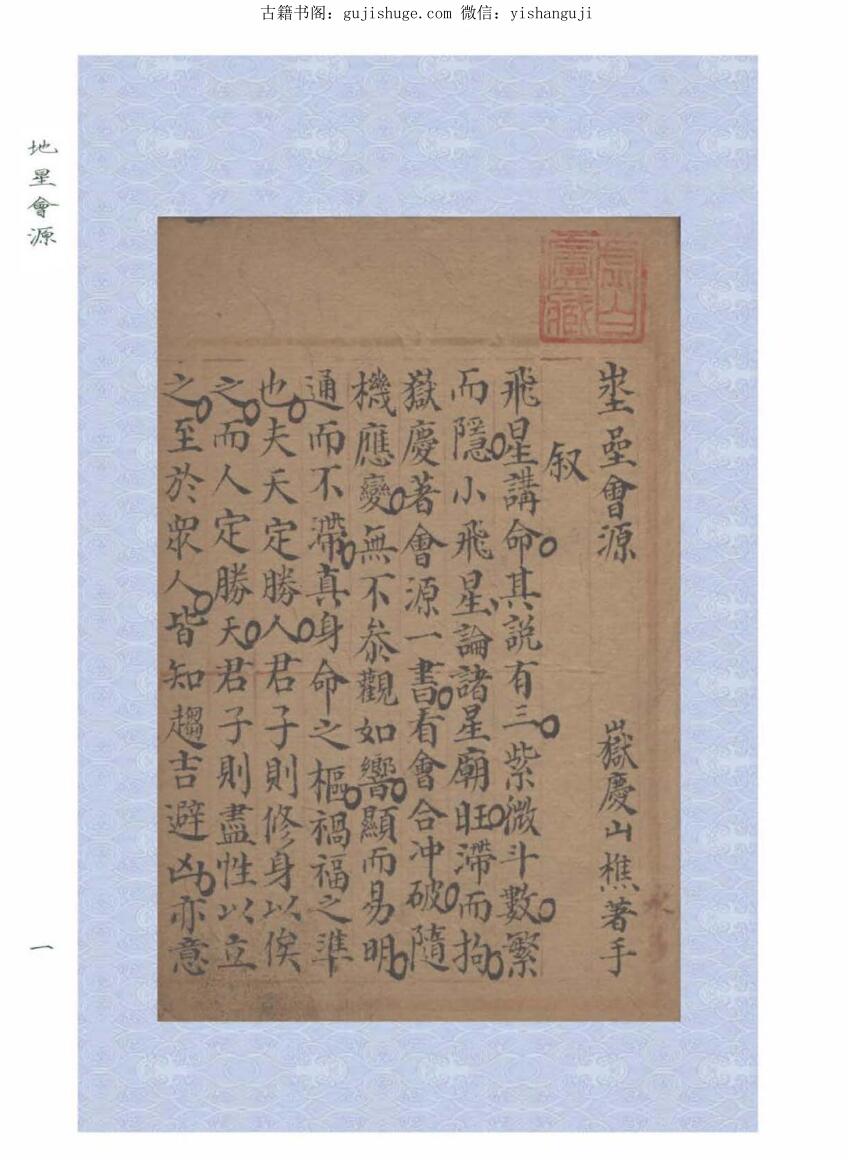 古籍书阁：gujishuge.com 微信：yishanguji
地星會源
虛白廬藏
埊會源　嶽慶山樵著手
叙
飛星講命。其說有三。紫微斗數。繁
而隱。小飛星、論諸星廟旺。滯而拘。
嶽慶著會源一書。看會合冲破。隨
機應變。無不叅觀如響。顯而易明。
通而不滯。真身命之樞。禍福之準
也。夫天定勝人。君子則修身以俟
之。而人定勝天。君子則盡性以立
之。至於衆人。皆知趨吉避凶。亦意
一